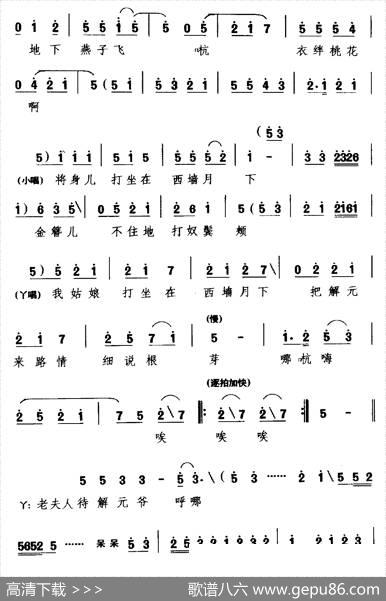 0 1 2 | 5 5 1 5 | 5 - | 0 5 | 2 1 7 | 5 5 5 4
地下 燕子飞 杭 衣绊桃花
0 4 2 1 | 5 (5 1 | 5 3 2 1 | 5 5 5 3 | 2· 1 2 1
啊
(5 3
5) 1 1 1 | 5 1 5 | 5 5 5 2 | 1 - | 3 3 2326
(小唱) 将身儿 打坐在 西墙月 下
1) 6 3 5 | 1 2 1 | 5 2 | 1 (5 3 | 2 1 2161
金簪儿 不住地 打奴鬓 颊
5) 5 2 1 | 1 2 1 7 | 2 1 2 7 | 0 2 2 1
(丫唱) 我姑娘 打坐在 西墙月下 把解元
(慢)
2 1 7 | 2 5 7 1 | 5 - | 1· 2 5 3
来路情 细说根 芽 哪杭嗨
(逐拍加快)
2 5 2 1 | 7 5 2 7 | 2 7 2 7 | 5 -
唉 唉 唉
5 5 3 5 - 5 3· (5 3 5 …… 2 1 5 5 2
丫: 老夫人待 解元爷 呼哪
5652 5 …… 呆 呆 5 3 | 2
高清下载 >>>
歌谱八六 www.gepu86.com